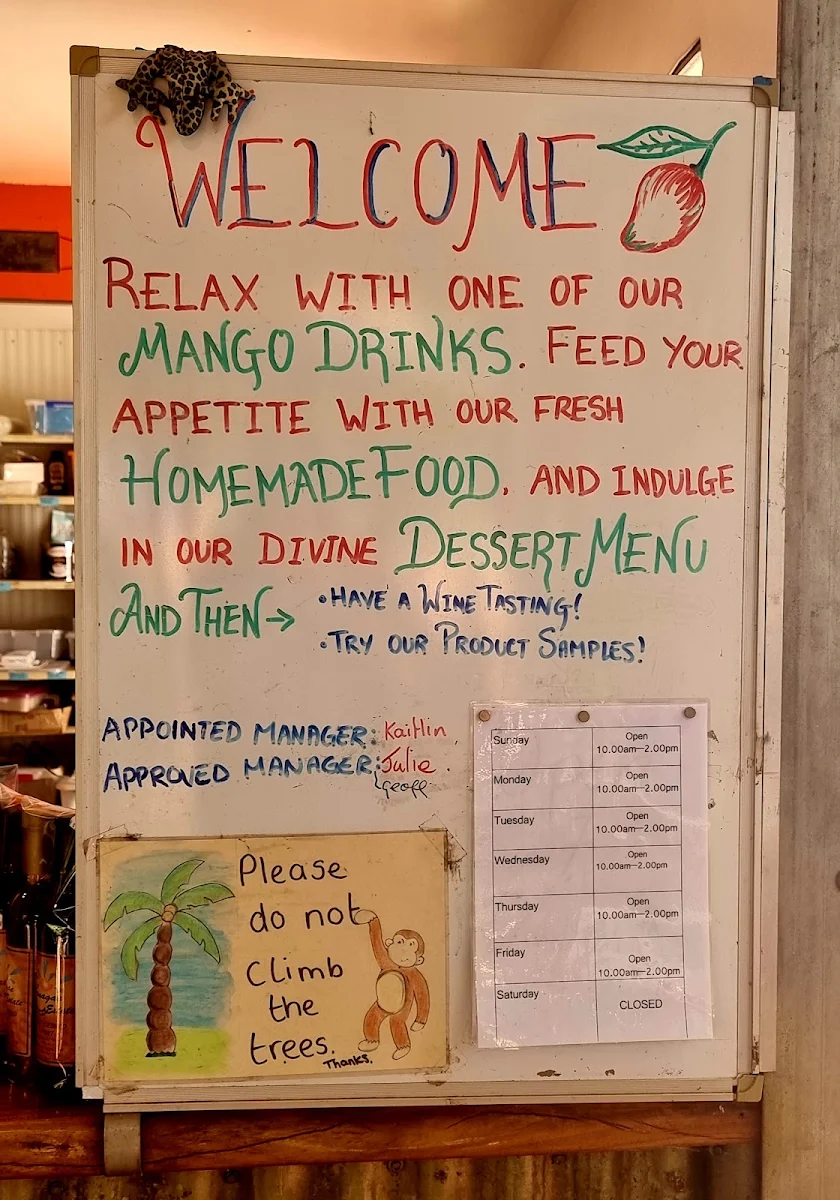 WELCOME
RELAX WITH ONE OF OUR
MANGO DRINKS. FEED YOUR
APPETITE WITH OUR FRESH
HOMEMADE FOOD, AND INDULGE
IN OUR DIVINE DESSERT MENU
AND THEN→
•HAVE A WINE TASTING!
•TRY OUR PRODUCT SAMPLES!
APPOINTED MANAGER: Kaitlin
APPROVED MANAGER: Julie
Geoff
Please
do not
Climb
the
trees.
Thanks.
Sunday Open
10.00am—2.00pm
Monday Open
10.00am—2.00pm
Tuesday Open
10.00am—2.00pm
Wednesday Open
10.00am—2.00pm
Thursday Open
10.00am—2.00pm
Friday Open
10.00am—2.00pm
Saturday CLOSED